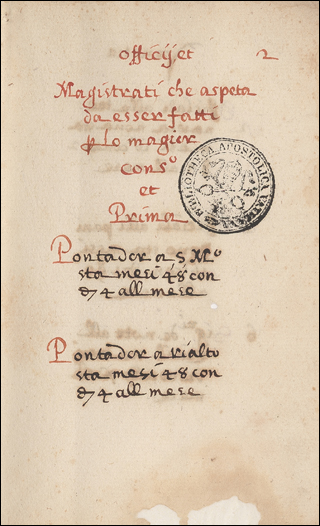 officij et 2
Magistrati che aspeta
da esser fatti
p lo magior
cons.º
et
Prima
BIBLIOTHECA APOSTOLICA VATICANA
Pontador a S Mº
sta mesi 48 con
d 4 all mese
Pontador a rialto
sta mesi 48 con
d 4 all mese